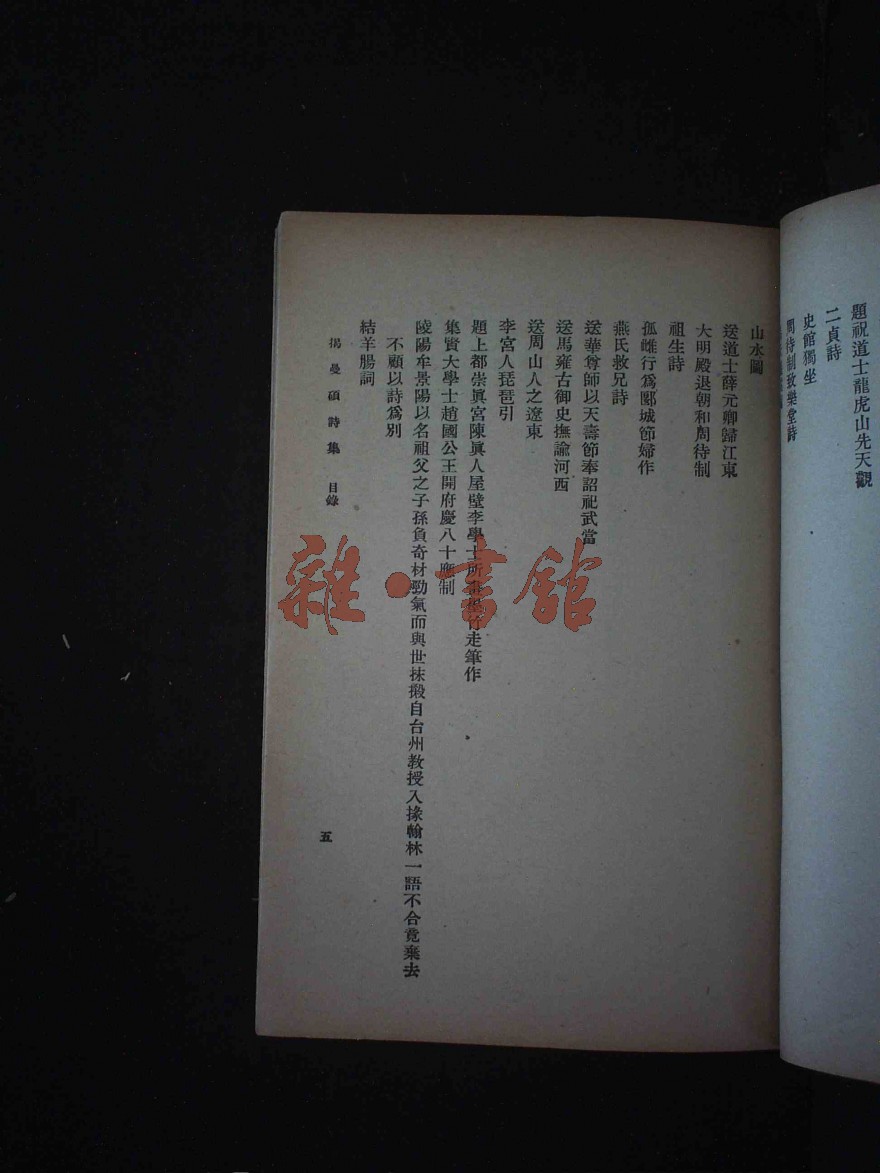 題祝道士龍虎山先天觀
二貞詩
史館獨坐
周待制致樂堂詩
山水圖
送道士薛元卿歸江東
大明殿退朝和周待制
祖生詩
孤雌行爲郾城節婦作
燕氏救兄詩
送華尊師以天壽節奉詔祀武當
送馬雍古御史撫諭河西
送周山人之遼東
李宮人琵琶引
題上都崇眞宮陳眞人屋壁李學士所畫竹走筆作
集賢大學士趙國公王開府慶八十應制
陵陽牟景陽以名祖父之子孫負奇材勁氣而與世抹摋自台州教授入掾翰林一語不合竟棄去
不顧以詩爲別
結羊腸詞
揭曼碩詩集 目錄
五
雜·書館